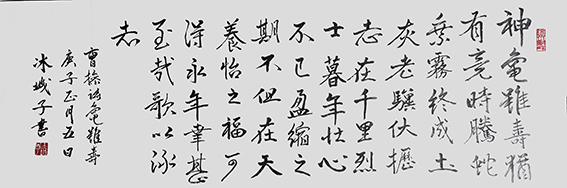 神龜雖壽猶
有竟時騰蛇
乘霧終成土
灰老驥伏櫪
志在千里烈
士暮年壯心
不已盈縮之
期不但在天
養怡之福可
得永年幸甚
至哉歌以詠
志
曹操詩龜雖壽
庚子正月五日
冰城子書